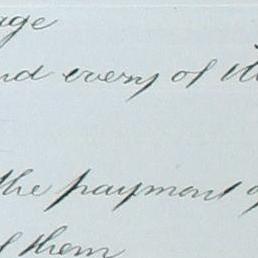 age
nd every of it
the payment of
of them